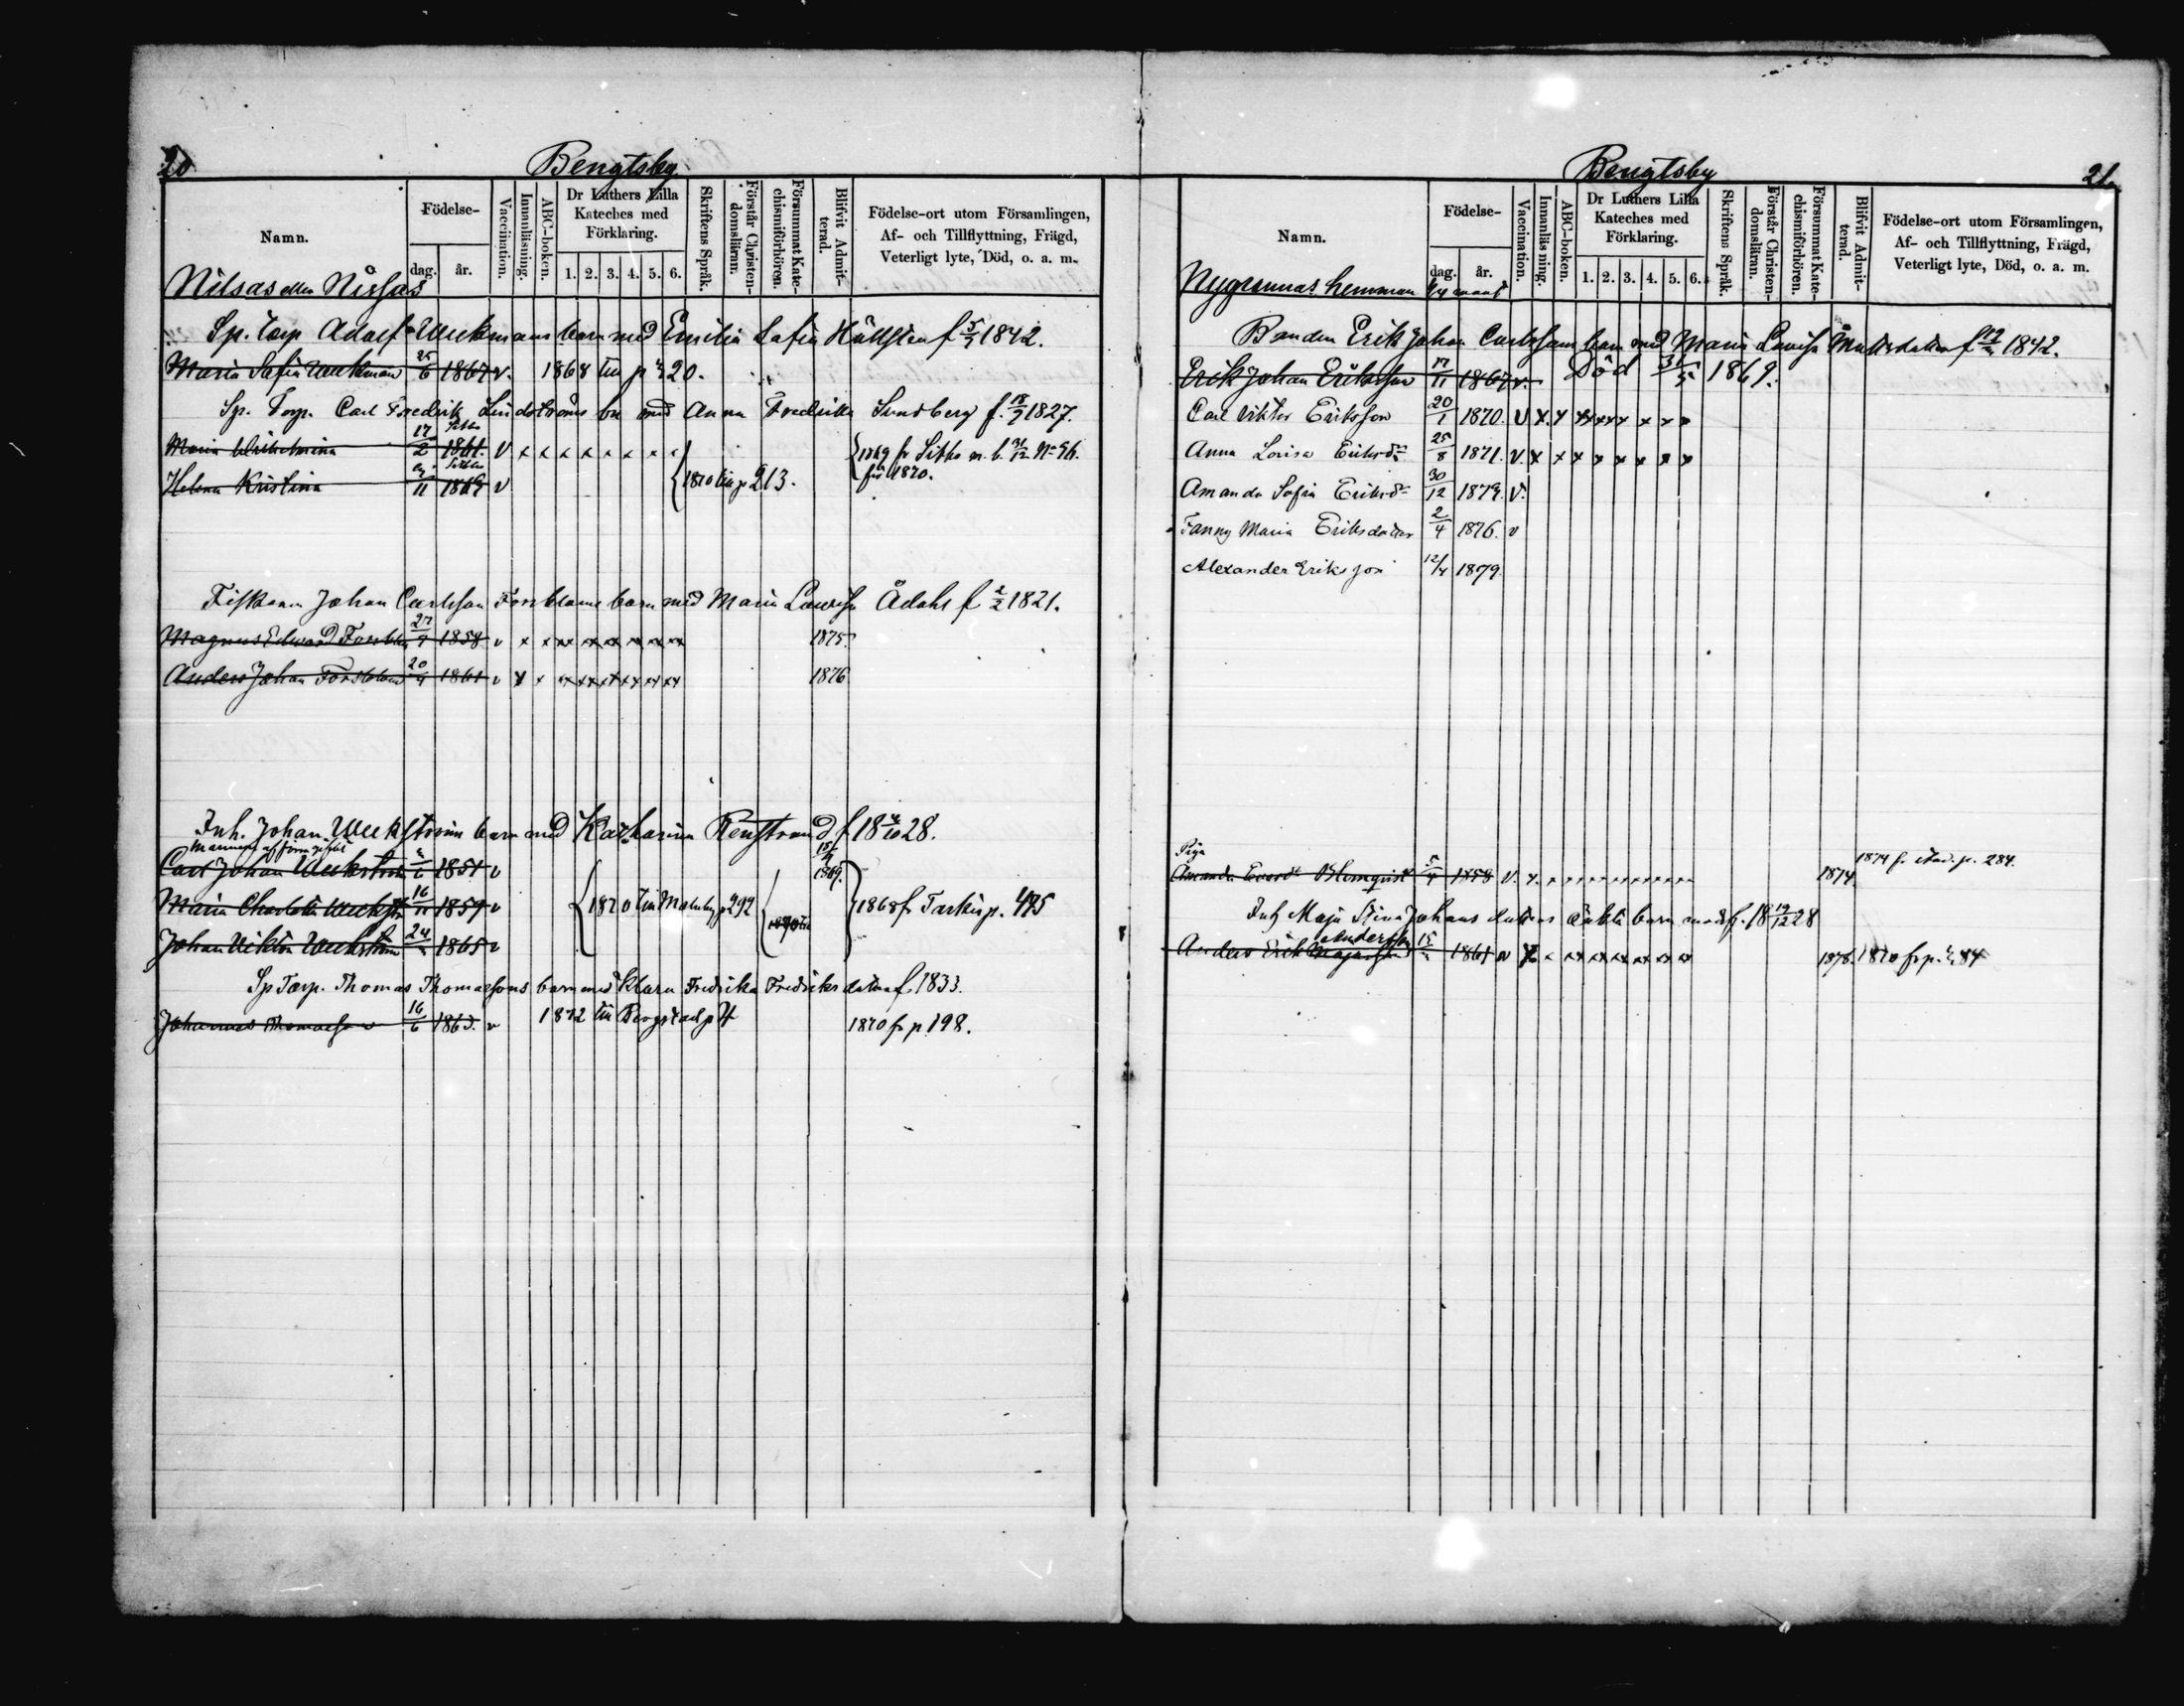 20
Bengtsby
Namn. Födelse- dag. år. Vaccination. Innanläsning. ABC-boken. Dr Luthers Lilla Kateches med Förklaring. 1. 2. 3. 4. 5. 6. Skriftens Språk. Förstår Christen-domsläran. Försummat Kate-chismiförhören. Blifvit Admit-terad. Födelse-ort utom Församlingen, Af- och Tillflyttning, Frägd, Veterligt lyte, Död, o. a. m.
Nilsas eller Nissas
Sp. Torp Adolf Weckmans barn med Emilia Sofia Hällsten f 5/3 1842.
Maria Sofia Weckman 25/6 1867 v. 1868 till p 20.
Sp. Torp. Carl Fredrik Lindströms bn med Anna Fredrika Sundberg f. 18/7 1827.
Maria Wilhelmina 17/2 Sibbo 1861. v x x x x x x x x 1869 fr Sibbo m. b. 31/12 No 96.
Helena Kristina /11 Sibbo 1869 v 1870 till p 213. för 1870.
Fiskaren Johan Carlsson Forsbloms barn med Maria Lovisa Ådahl f 2/2 1821.
Magnus Edward Forsblom 27/9 1858 v x x xx xx xx xx xx xx 1875.
Anders Johan Forsblom 20/9 1861 v x x xx xx xx xx xx xx 1876
Inh. Johan Weckströms barn med Katharina Renstrand f 18 4/10 28.
Carl Johan Weckström /6 1851 v 1869.
Maria Charlotta Weckstr 16/11 1859 v 1870 till Malmby p 292 1868 fr Tarkis p. 495
Johan Viktor Weckström 24/ 1865 v
Sp Torp. Thomas Thomassons barn med Klara Fredrika Fredriksdotter f. 1833.
Johannes Thomasson 16/6 1863. v 1872 till Borgstad p 4 1870 fr p 198.
Bengtsby
21.
Namn. Födelse- dag. år. Vaccination. Innanläsning. ABC-boken. Dr Luthers Lilla Kateches med Förklaring. 1. 2. 3. 4. 5. 6. Skriftens Språk. Förstår Christen-domsläran. Försummat Kate-chismiförhören. Blifvit Admit-terad. Födelse-ort utom Församlingen, Af- och Tillflyttning, Frägd, Veterligt lyte, Död, o. a. m.
hemman
Bonden Erik Johan Carlssons barn med Maria Lovisa Mattsdotter f 1842.
Erik Johan Eriksson 17/11 1867 v. Död 31/5 1869.
Carl Viktor Eriksson 20/1 1870. v x. x xx xx xx x x x
Anna Lovisa Eriksdr 25/8 1871. v. x x x x x x x x
Amanda Sofia Eriksdr 30/12 1873. v.
Fanny Maria Eriksdotter 2/4 1876. v
Alexander Eriksson 12/4 1879.
Piga
Amanda Blomqvist 1858 v. x. x x x x x x x 1874. 1874 fr p. 284.
Inh Maja Stina Johansdotters oäkta barn f. 18 19/12 28
Andersson
Anders Erik Majasson 15/ 1861 v x x xx xx xx xx xx xx 1878. 1870 fr p. 84